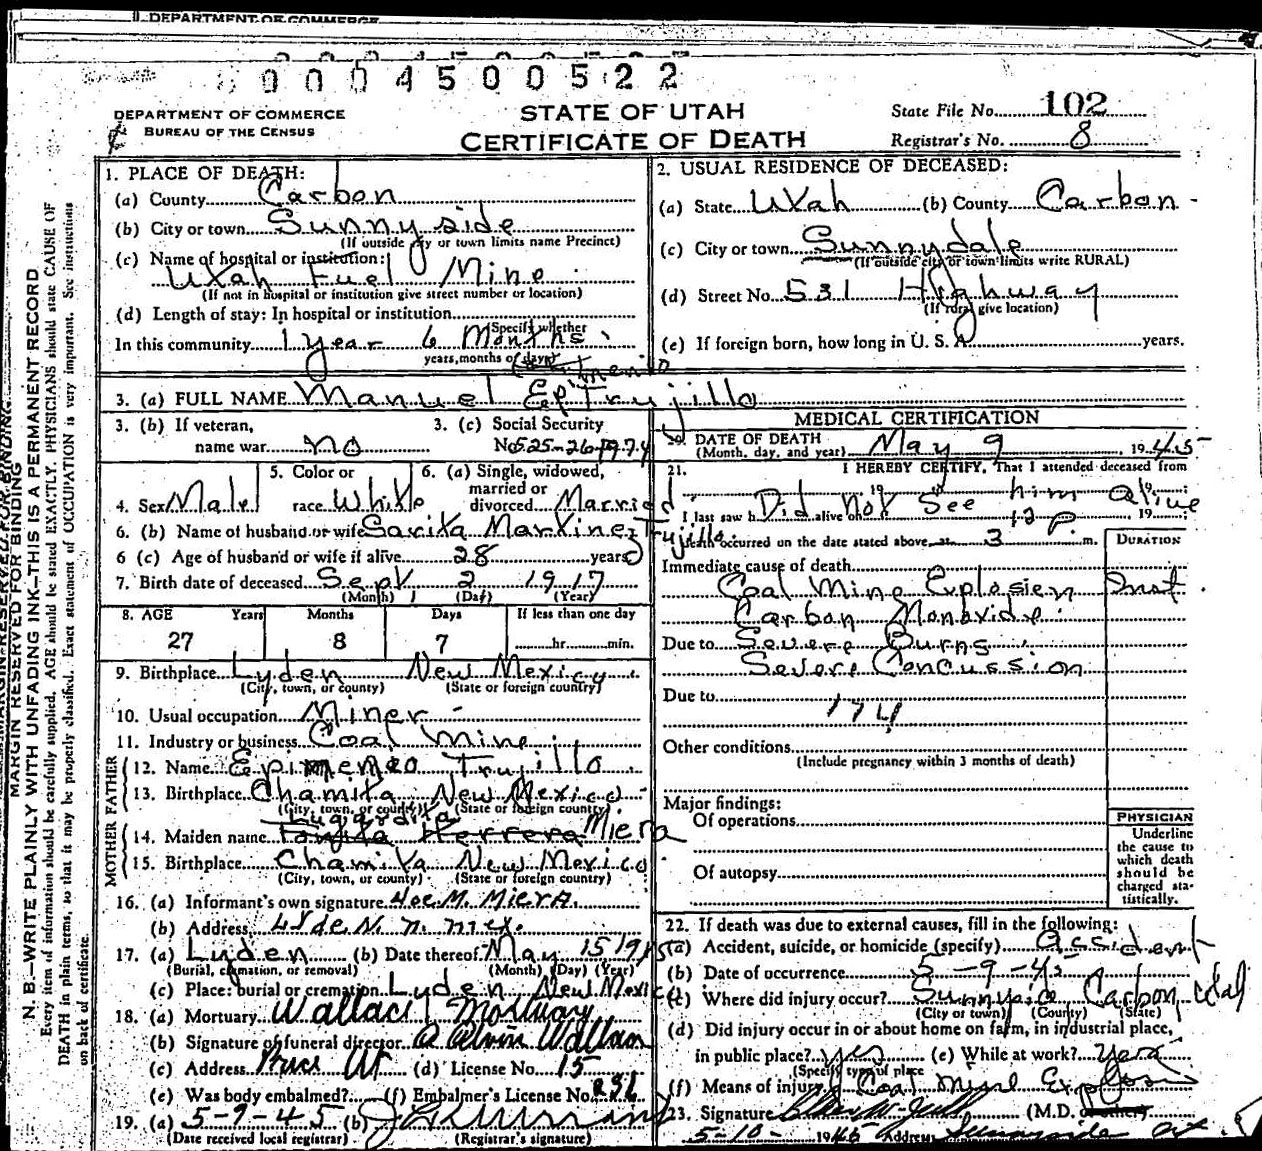 DEPARTMENT OF COMMERCE
0 0 0 4 5 0 0 5 2 2
DEPARTMENT OF COMMERCE
BUREAU OF THE CENSUS
STATE OF UTAH
CERTIFICATE OF DEATH
State File No. 102
Registrar's No. 8
MARGIN RESERVED FOR BINDING
N. B.—WRITE PLAINLY WITH UNFADING INK—THIS IS A PERMANENT RECORD
Every item of information should be carefully supplied. AGE should be stated EXACTLY. PHYSICIANS should state CAUSE OF
DEATH in plain terms, so that it may be properly classified. Exact statement of OCCUPATION is very important. See instructions
on back of certificate.
1. PLACE OF DEATH:
(a) County Carbon
(b) City or town Sunnyside
(If outside city or town limits name Precinct)
(c) Name of hospital or institution:
Utah Fuel Mine
(If not in hospital or institution give street number or location)
(d) Length of stay: In hospital or institution
In this community 1 year 6 Months
(Specify whether
years, months or days)
2. USUAL RESIDENCE OF DECEASED:
(a) State Utah (b) County Carbon
(c) City or town Sunnydale
(If outside city or town limits write RURAL)
(d) Street No. 531 Highway
(If rural give location)
(e) If foreign born, how long in U. S. A. years.
3. (a) FULL NAME Manuel Ep Trujillo
3. (b) If veteran,
name war no
3. (c) Social Security
No 525-26-
4. Sex Male
5. Color or
race White
6. (a) Single, widowed,
married or
divorced Married
6. (b) Name of husband or wife Sarita Martinez Trujillo
6 (c) Age of husband or wife if alive 28 years
7. Birth date of deceased Sept 2 1917
(Month) (Day) (Year)
8. AGE Years Months Days If less than one day
27 8 7 hr. min.
9. Birthplace Lyden New Mexico
(City, town, or county) (State or foreign country)
10. Usual occupation Miner
11. Industry or business Coal Mine
FATHER
12. Name Epimeneo Trujillo
13. Birthplace Chamita New Mexico
(City, town, or county) (State or foreign country)
MOTHER
14. Maiden name Herrera Miera
15. Birthplace Chamita New Mexico
(City, town, or county) (State or foreign country)
16. (a) Informant's own signature Joe M. Miera
(b) Address Lyde N. n. mex.
17. (a) Lyden (b) Date thereof May 15 1945
(Burial, cremation, or removal) (Month) (Day) (Year)
(c) Place: burial or cremation Lyden New Mexico
18. (a) Mortuary Wallace Mortuary
(b) Signature of funeral director A Alvin Wallace
(c) Address Price Ut (d) License No. 15
(e) Was body embalmed? (f) Embalmer's License No. 236
19. (a) 5-9-45 (b)
(Date received local registrar) (Registrar's signature)
MEDICAL CERTIFICATION
20. DATE OF DEATH May 9, 1945
(Month, day, and year)
21. I HEREBY CERTIFY, That I attended deceased from
19 19
I last saw h Did alive on Not See him alive 19
Death occurred on the date stated above, at 3 12 P m.
DURATION
Immediate cause of death
Coal Mine Explosion Inst.
Carbon Monoxide
Due to Severe Burns
Severe Concussion
Due to
Other conditions
(Include pregnancy within 3 months of death)
Major findings:
Of operations
Of autopsy
PHYSICIAN
Underline
the cause to
which death
should be
charged sta-
tistically.
22. If death was due to external causes, fill in the following:
(a) Accident, suicide, or homicide (specify) Accident
(b) Date of occurrence 5-9-45
(c) Where did injury occur? Sunnyside Carbon Utah
(City or town) (County) (State)
(d) Did injury occur in or about home on farm, in industrial place,
in public place? yes (e) While at work? yes
(Specify type of place
(f) Means of injury Coal Mine Explosion
23. Signature (M.D. or other)
5-10-1945 Address Sunnyside Ut.